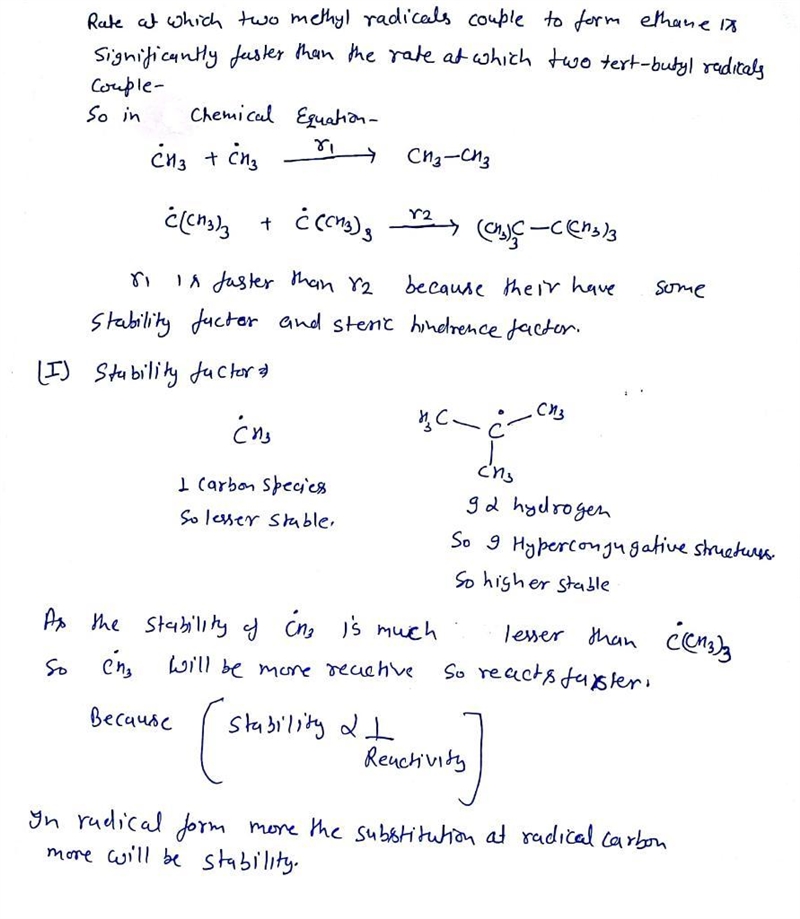 Rate at which two methyl radicals couple to form ethane is
Significantly faster than the rate at which two tert-butyl radicals
Couple-
So in Chemical Equation-
ĊH3 + ĊH3 r1 → CH3-CH3
Ċ(CH3)3 + Ċ(CH3)3 r2 → (CH3)3C-C(CH3)3
r1 is faster than r2 because their have some
Stability factor and steric hindrence factor.
(I) Stability factor →
ĊH3
H3C-Ċ-CH3
CH3
1 Carbon Species
So lesser stable.
9 α hydrogen
So 9 Hyperconjugative structures.
So higher stable
As the stability of ĊH3 is much lesser than Ċ(CH3)3
So ĊH3 will be more reactive so reacts faster.
Because [Stability α 1/Reactivity]
In radical form more the substitution at radical carbon
more will be stability.